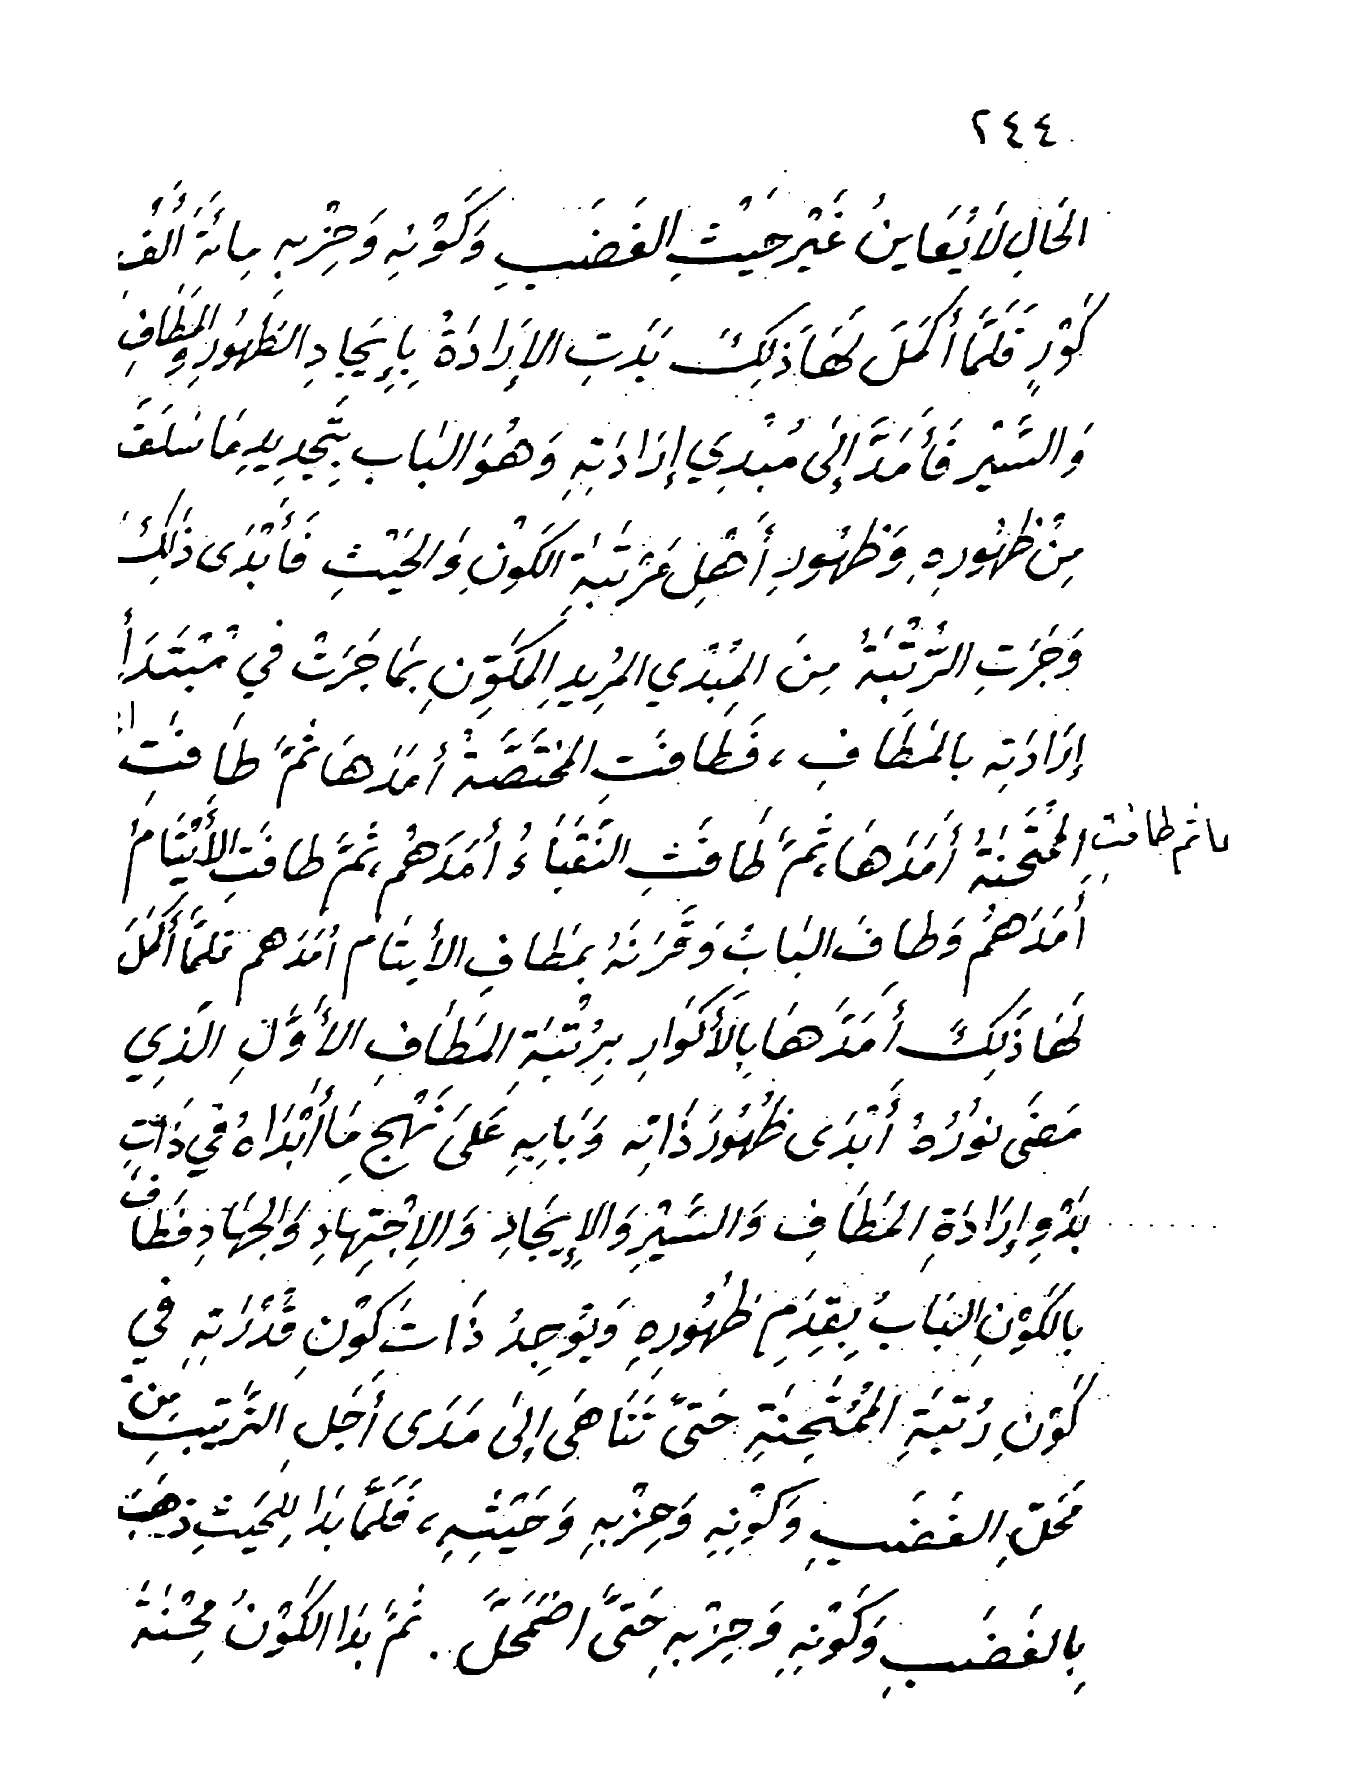 ٢٤٤
الحَالِ لَا يُعَايِنُ غَيْرَ حَيْثِ الغَضَبِ وَكَوْنِهِ وَحِزْبِهِ مِائَةَ أَلْفِ
كَوْرٍ فَلَمَّا أَكْمَلَ لَهَا ذَلِكَ بَدَتِ الإِرَادَةُ بِإِيجَادِ الظُهُورِ وَالمَطَافِ
وَالسَّيْرِ فَأَمَدَّ إِلَى مُبْدِي إِرَادَتِهِ وَهُوَ البَابُ بِتَجْدِيدِ مَا سَلَفَ
مِنْ ظُهُورِهِ وَظُهُورِ أَهْلِ مَرْتَبَةِ الكَوْنِ وَالحَيْثِ فَأَبْدَى ذَلِكَ
وَجَرَتِ الرُّتْبَةُ مِنَ المُبْدِي المُرِيدِ المُكَوِّنِ بِمَا جَرَتْ فِي مُبْتَدَأ
إِرَادَتِهِ بِالمَطَافِ ، فَطَافَتِ المُخْتَصَّةُ أَمَدَهَا ثُمَّ طَافَتِ
المُمْتَحَنَةُ أَمَدَهَا، ثُمَّ طَافَتِ النُّقَبَاءُ أَمَدَهُم، ثُمَّ طَافَتِ الأَيْتَامُ
ها ثم طافت
أَمَدَهُم وَطَافَ البَابُ وَقَرَنَهُ بِمَطَافِ الأَيتَام أَمَدَهم فلمَّا أَكمَلَ
لَهَا ذَلِكَ أَمَدَّهَا بِالأَكْوَارِ بِرُتْبَةِ المَطَافِ الأَوَّلِ الَّذِي
مَضَى نورُهُ أَبْدَى ظُهُورَ ذَاتِهِ وَبَابِهِ عَلَى نَهْجِ مَا أَبْدَاهُ فِي ذَاتِ
بَدْوِ إِرَادَةِ المَطَافِ وَالسَّيْرِ وَالإِيجَادِ وَالِاجْتِهَادِ وَالجِهَادِ فَطَافَ
بِالكَوْنِ البَابُ بِقِدَمِ ظُهُورِهِ وَيُوجِدُ ذَاتَ كَوْنِ قُدْرَتِهِ فِي
كَوْنِ رُتبَةِ المُمْتَحِنَةِ حَتَّى تَنَاهَى إِلَى مَدَى أَجَلِ التَّرْتِيبِ مِن
مَحَلِّ الغَضَبِ وَكَوْنِهِ وَحِزْبِهِ وَحَيْثِهِ ، فَلَمَّا بَدَا لِلحَيثِ ذهَبَ
بِالغَضَبِ وَكَوْنِهِ وَحِزْبِهِ حَتَّى اضْمَحَلَّ . ثُمَّ بَدَا الكَوْنُ مِحْنَةً